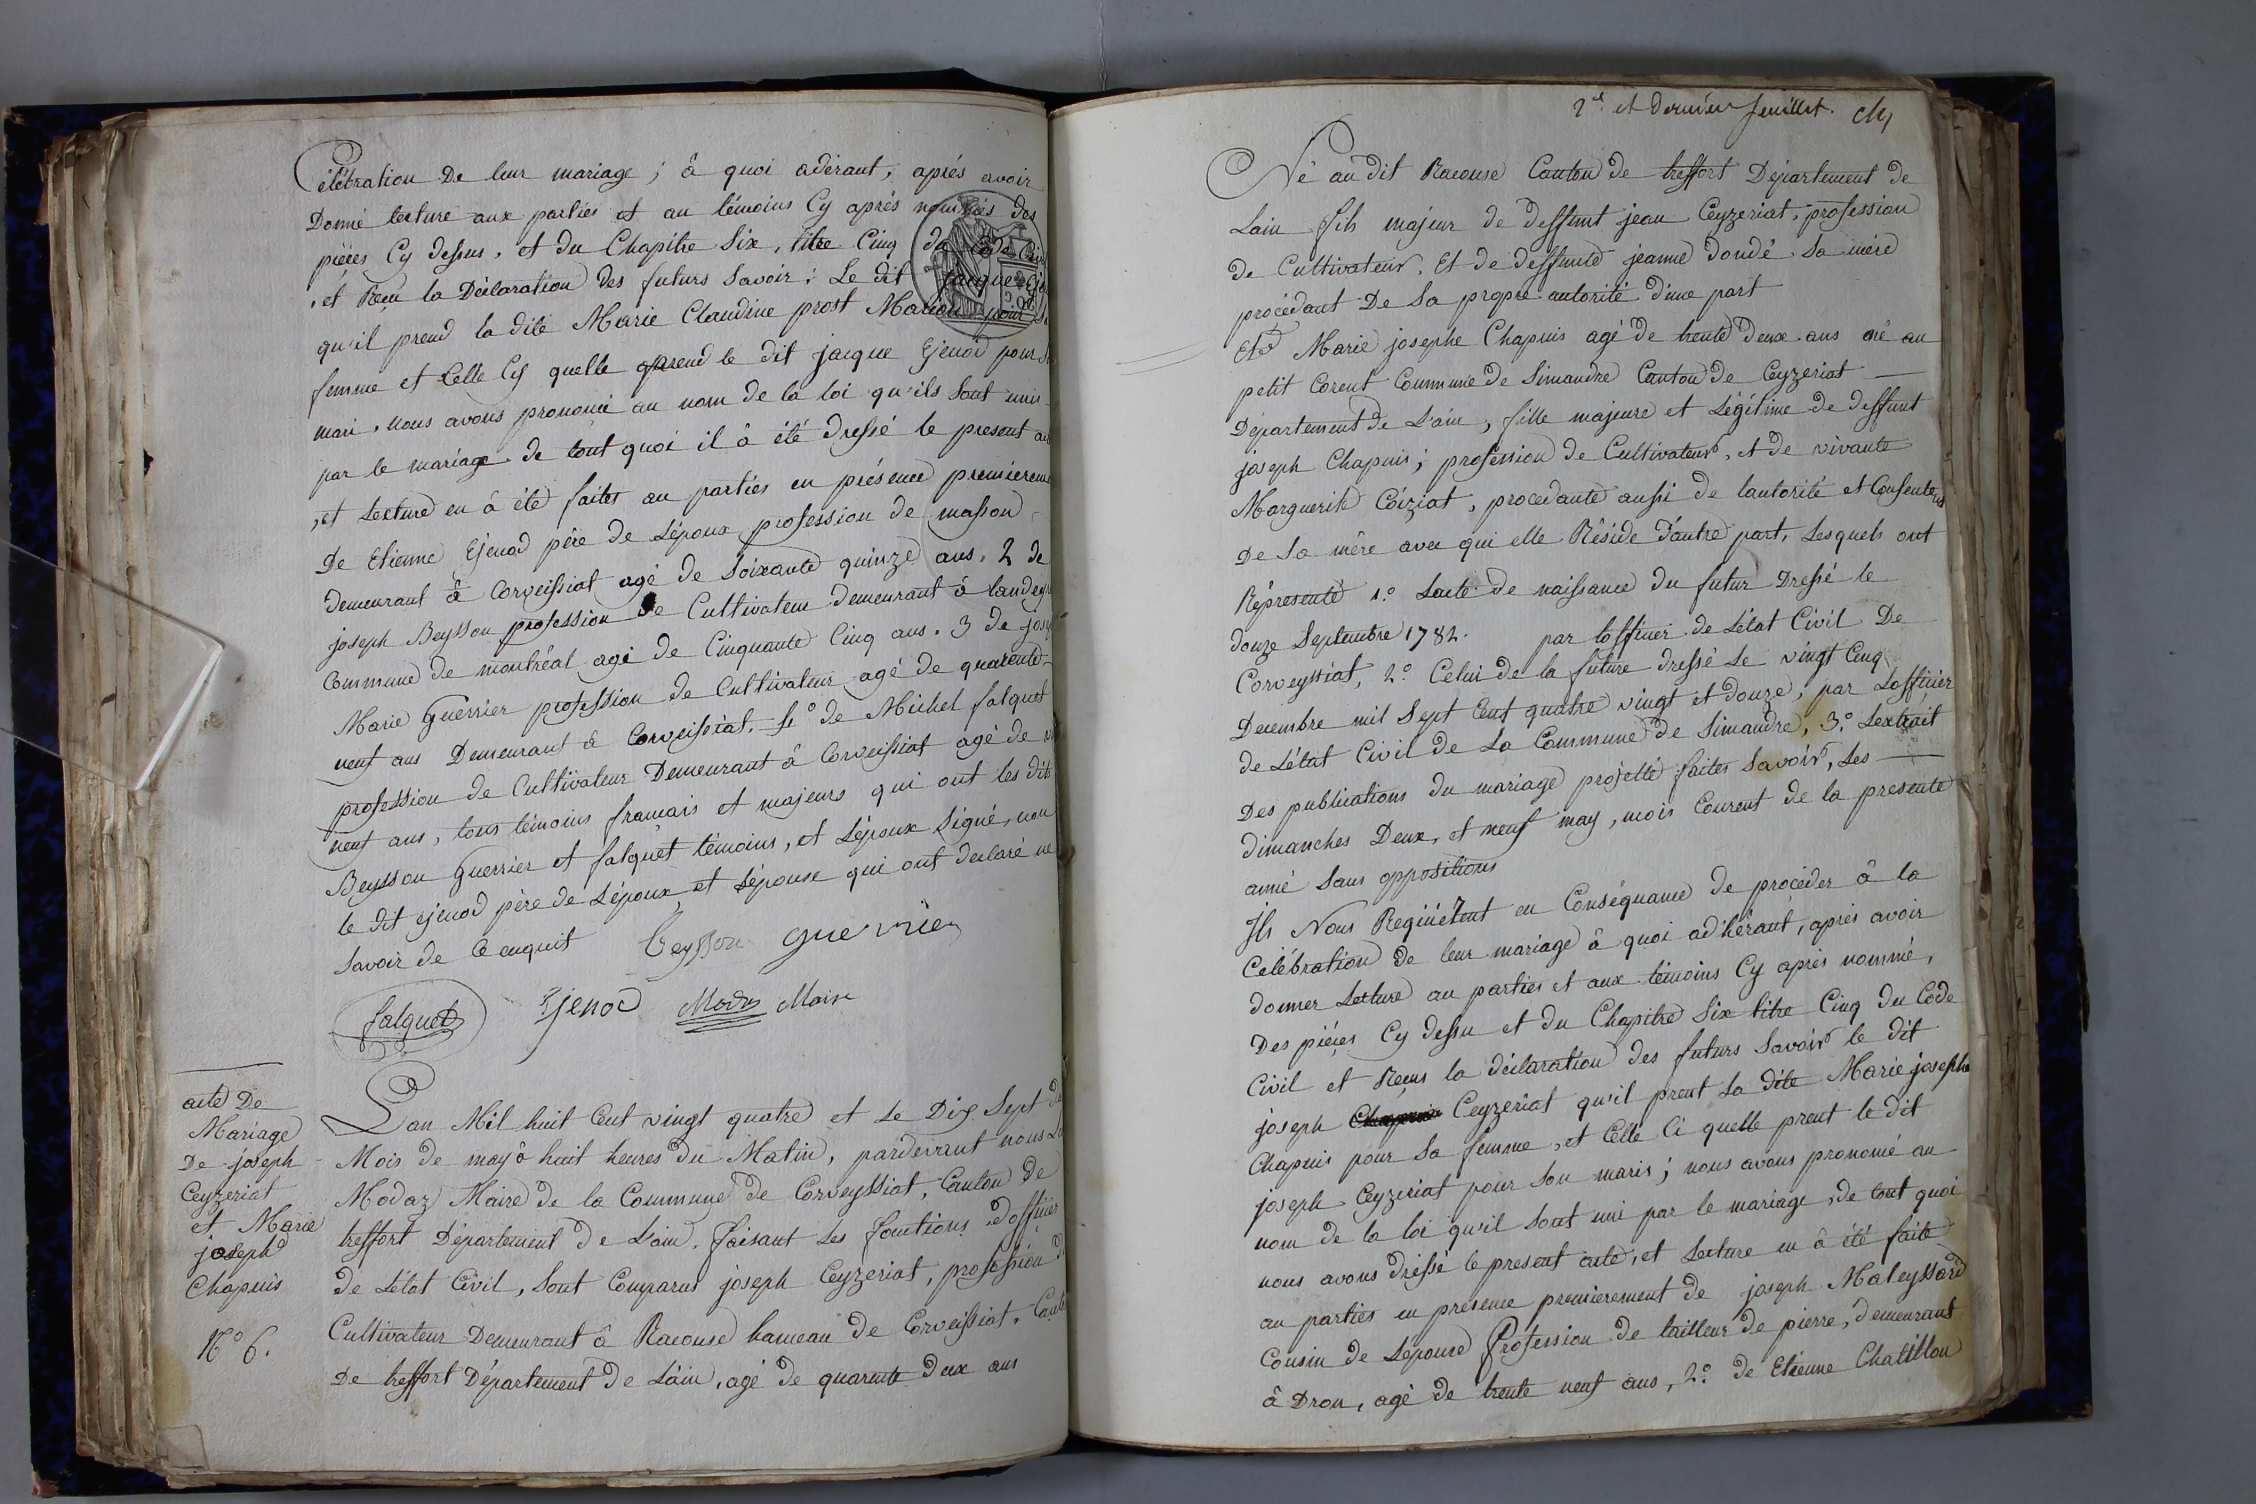 Célébration De leur mariage ; â quoi adèrant, aprés avoir
Donné lecture aux parties et au témoins Cy aprés nommés des
piéces Cy dessus, et du Chapitre Six, titre Cinq du Code Civil
, et Reçu la Déclaration des futurs Savoir : Le dit jacque Ejenod
qu'il prend la dite Marie Claudine prost Marion pour sa
femme et Celle Cy quelle prend le dit jacque Ejenod pour
mari, nous avons prononcé au nom de la loi qu'ils Sont unis
par le mariage. de tout quoi il â été dressé le present
, et Lecture en â été faites au parties en présence premierem
De Etienne Ejenod pére de Lépoux profession de masson
demeurant â Corveissiat agé de Soixante quinze ans. 2 de
joseph Beysson profession de Cultivateur demeurant â
Commune de montréal agé de Cinquante Cinq ans. 3 de
Marie Guérrier profession de Cultivateur agé de quarente
neuf ans Demeurant â Corveissiat. 4° de Michel falquet
profession de Cultivateur Demeurant â Corveissiat agé de
neuf ans, tous témoins francais et majeurs qui ont les dits
Beysson Guerrier et falquet témoins, et Lépoux Signé, non
le dit ejenod pére de Lépoux et Lépouse qui ont declaré ne
Savoir de Ce enquit Beysson guerrier
falquet Ejenod Modas Maire
acte De
Mariage
De joseph
Ceyzeriat
et Marie
joseph
Chapuis
N° 6.
Lan Mil huit Cent vingt quatre et Le Dix Sept du
Mois de may â huit heures du Matin, pardevant nous
Modaz Maire de la Commune de Corveyssiat, Canton de
treffort Département De L'ain, faisant Les fonctions d'officier
de Létat Civil, Sont Comparus joseph Ceyzeriat, profession de
Cultivateur Demeurant â Racouse hameau de Corveissiat, Canton
De treffort Département De Lain, agé de quarente deux ans
2e. et dernier feuillet.
Né au dit Racouse Canton de treffort Département de
Lain fils majeur de deffunt jean Ceyzeriat, profession
de Cultivateur, Et de deffunte jeanne dondé Sa mére
procédant De Sa propre autorité d'une part
Et Marie josephe Chapuis agé de trente deux ans né au
petit Corent Commune de Simandre Canton de Ceyzeriat
Département de L'ain, fille majeure et Légitime de deffunt
joseph Chapuis ; profession de Cultivateur, et de vivante
Marguerite Coiziat, procedante aussi de lautorité et Consentem
De Sa mére avec qui elle Réside d'autre part, Lesquels ont
Répresenté 1.° Lacte de naissance du futur Dressé le
douze Septembre 1782. par Lofficier de Létat Civil De
Corveyssiat, 2.° Celui de la future dressé Le vingt Cinq
Decembre mil Sept Cent quatre vingt et douze, par Lofficier
de Létat Civil de La Commune de Simandre, 3.° Lextrait
Des publications du mariage projetté faites Savoir, Les
dimanches Deux, et neuf may, mois Courent de la presente
anné Sans oppositions
Ils Nous Requiérent en Conséquance de procéder â la
Célébration de leur mariage â quoi adhérant, aprés avoir
donner Lecture au parties et aux témoins Cy aprés nommé,
Des piéces Cy dessu et du Chapitre Six titre Cinq du Code
Civil et Reçus la déclaration des futurs Savoir le dit
joseph Ceyzeriat qu'il prent La dite Marie josephe
Chapuis pour Sa femme, et Celle Ci quelle prent le dit
joseph Ceyzeriat pour Son maris ; nous avons prononcé au
nom de la loi qu'il Sont uni par le mariage, de tout quoi
nous avons dréssé le present acte, et Lecture en â été faite
au parties en présence premierement de joseph Maleyssard
Cousin de Lépouse Profession de tailleur de pierre, demeurant
â Drom, agé de trente neuf ans, 2.° de Etienne Chatillon